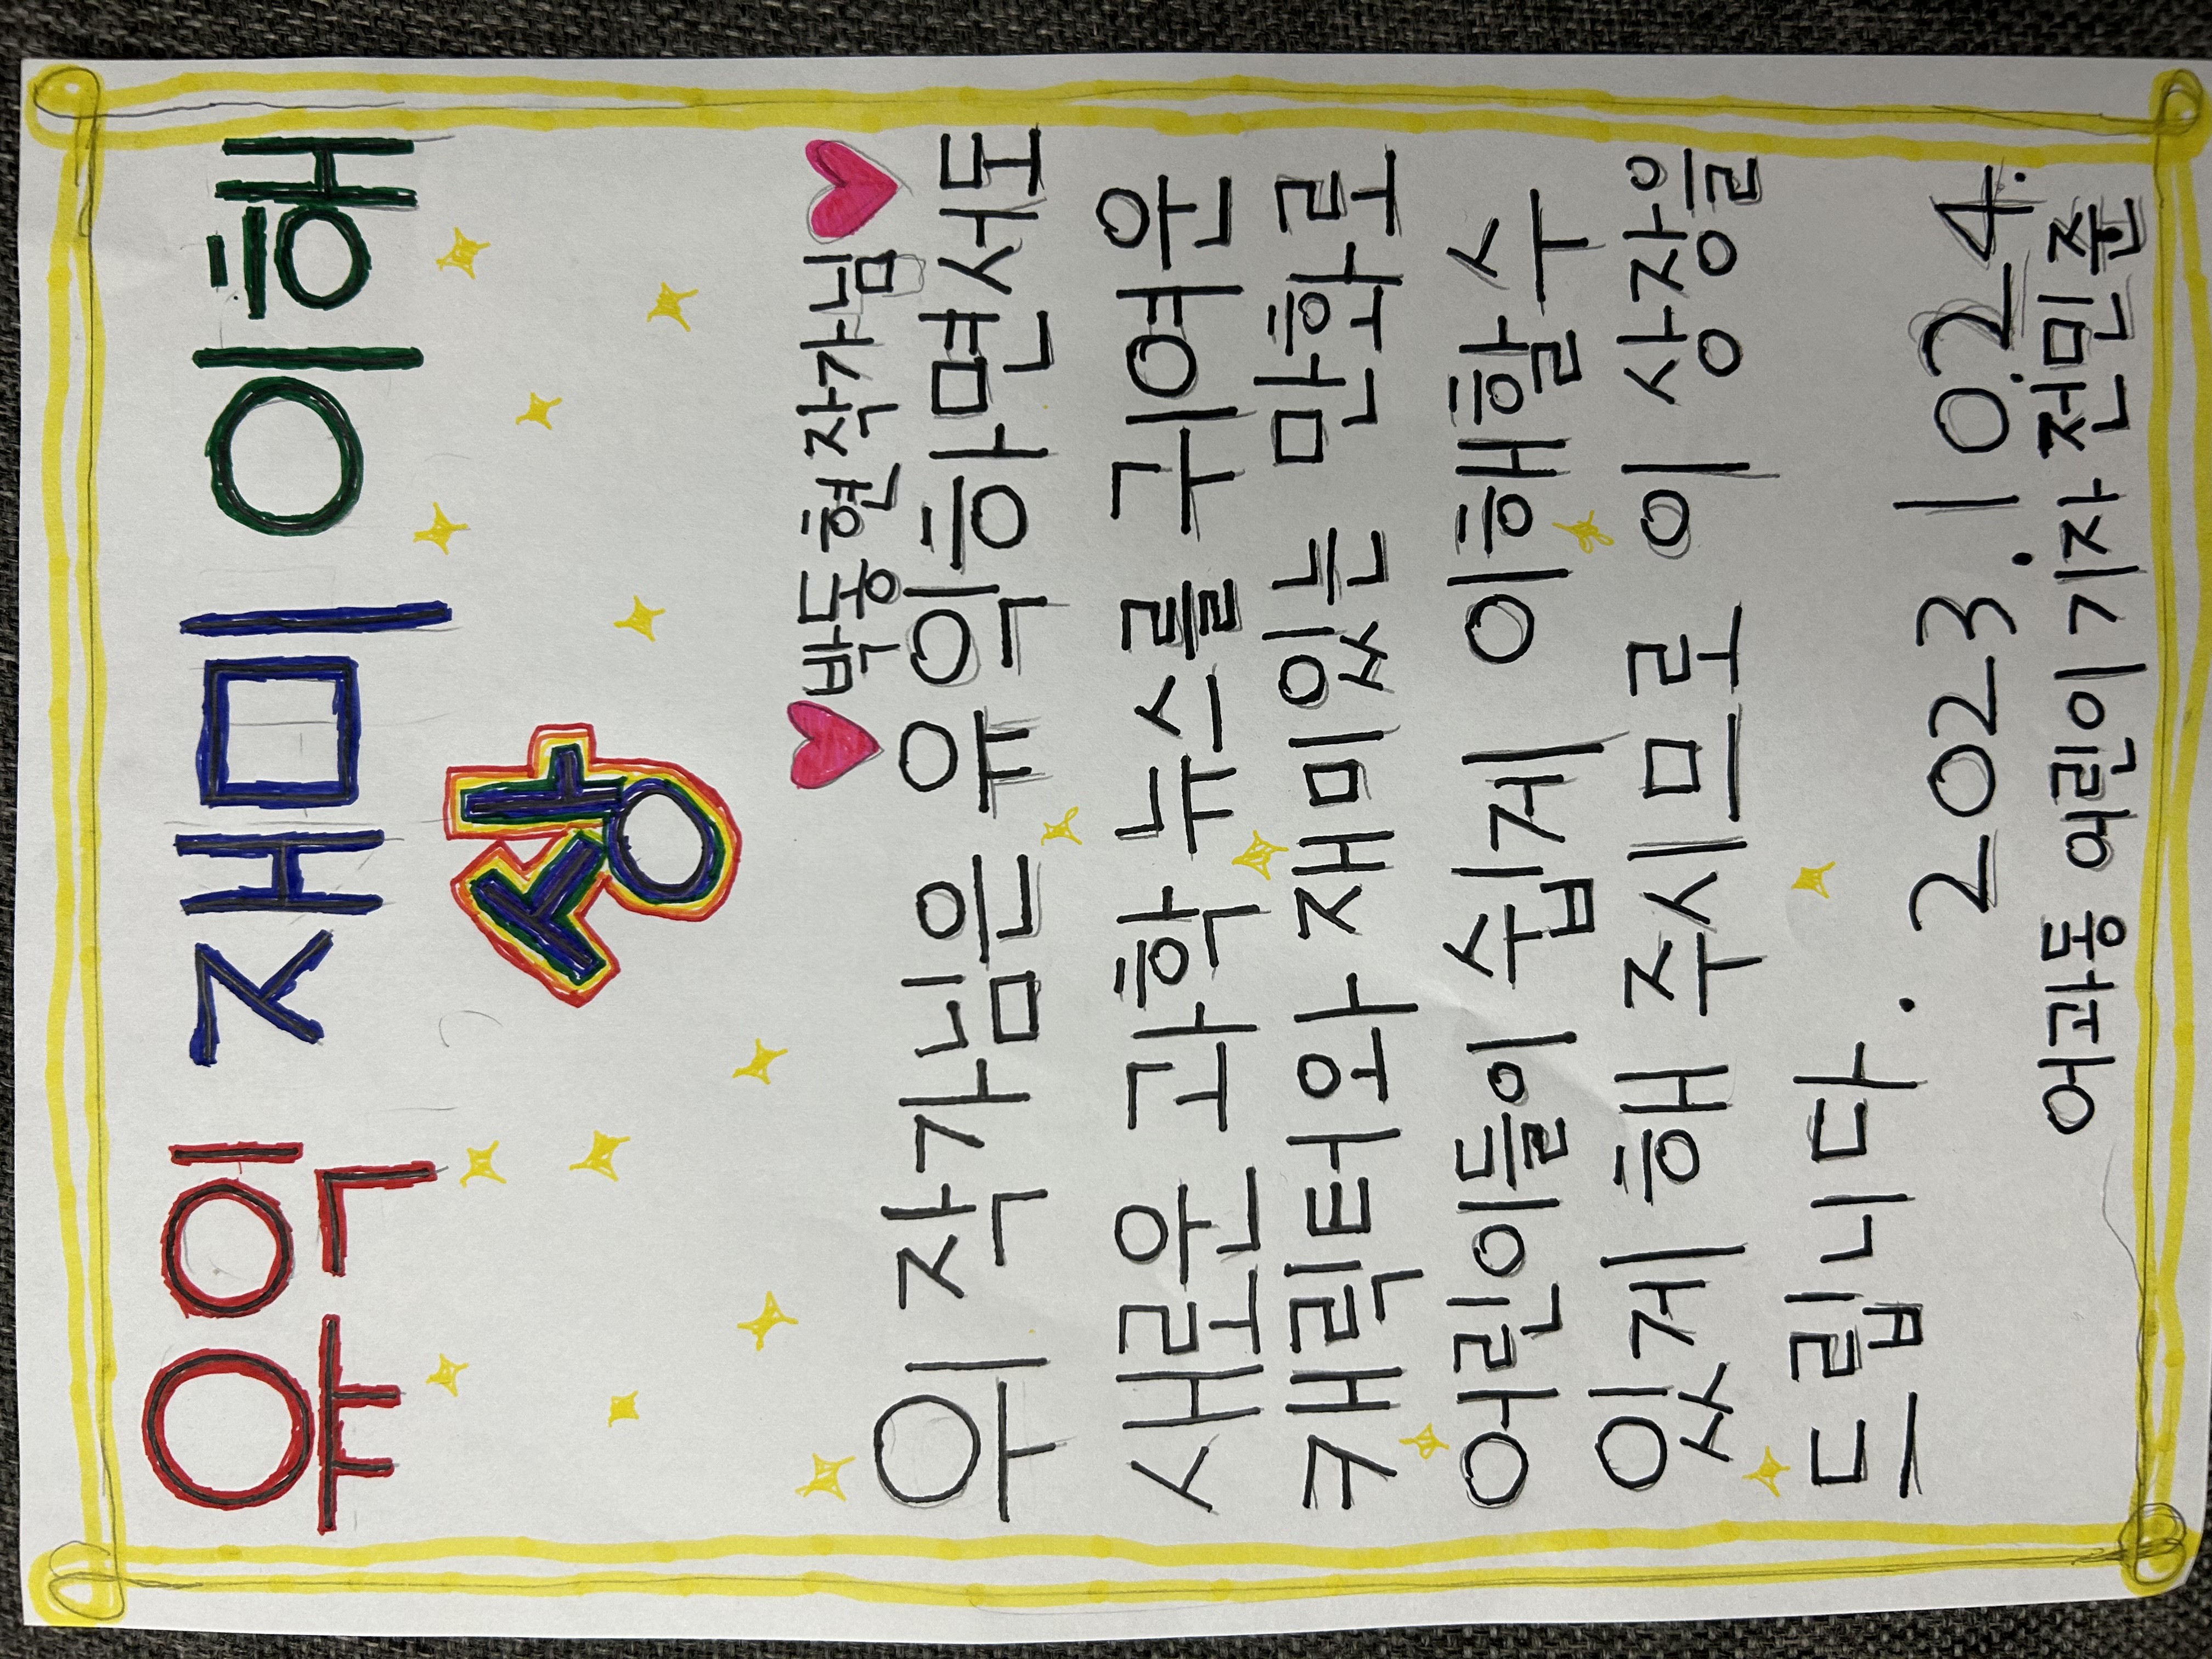 유익 재미 이해
상
박동현 작가님
위 작가님은 유익하면서도
새로운 과학 뉴스를 귀여운
캐릭터와 재미있는 만화로
어린이들이 쉽게 이해할 수
있게 해 주시므로 이 상장을
드립니다. 2023.1024.
어과동 어린이 기자 전민준